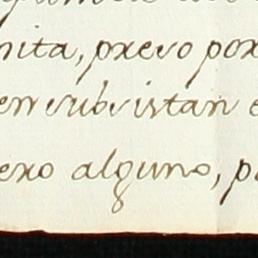 nita, preso por
en subsistan e
ero alguno, p